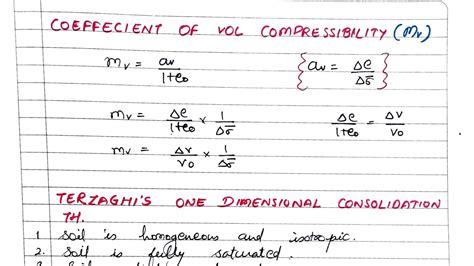 COEFFECIENT OF VOL COMPRESSIBILITY (mv)
mv = av / 1+e0 { av = Δe / Δσ̄ }
mv = Δe / 1+e0 × 1 / Δσ̄ Δe / 1+e0 = ΔV / V0
mv = ΔV / V0 × 1 / Δσ̄
TERZAGHI'S ONE DIMENSIONAL CONSOLIDATION
TH.
1. Soil is homogeneous and isotropic.
2. Soil is fully saturated.